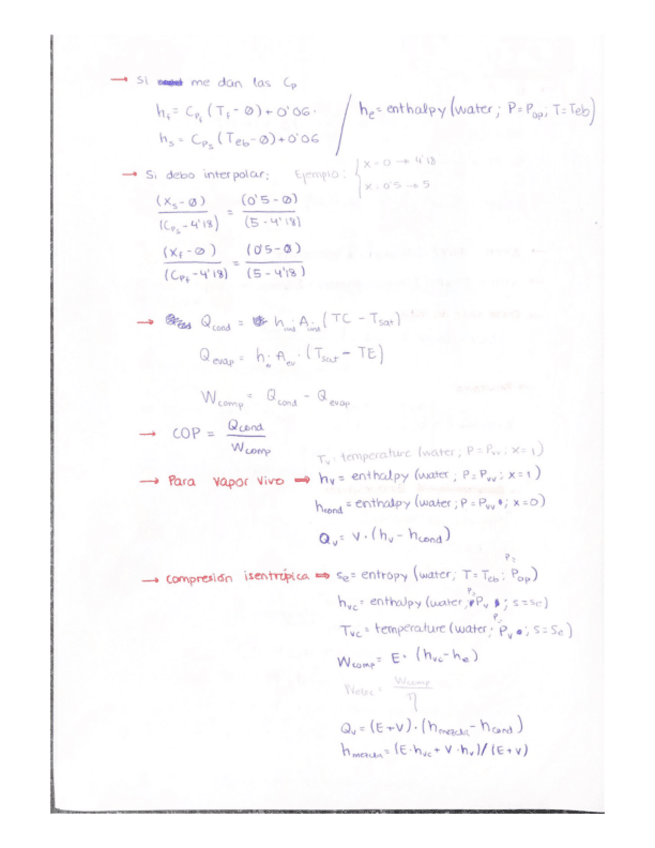 → Si me dan las Cp
hf = Cpf (Tf - 0) + 0'06.
hs = Cps (Teb - 0) + 0'06
/ he = enthalpy (water; P = Pop; T = Teb)
→ Si debo interpolar: Ejemplo: { x = 0 → 4'18
x = 0'5 → 5
(Xs - 0) / (Cps - 4'18) = (0'5 - 0) / (5 - 4'18)
(Xf - 0) / (Cpf - 4'18) = (0'5 - 0) / (5 - 4'18)
→ Qcond = h A (TC - Tsat)
Qevap = h · Aev · (Tsat - TE)
Wcomp = Qcond - Qevap
→ COP = Qcond / Wcomp
Tv: temperature (water; P = Pvv; x = 1)
→ Para vapor vivo ⇒ hv = enthalpy (water; P = Pvv; x = 1)
hcond = enthalpy (water; P = Pvv; x = 0)
Qv = V · (hv - hcond)
→ compresión isentrópica ⇒ se = entropy (water; T = Teb; Pop)
hvc = enthalpy (water; Pv; s = se)
Tvc = temperature (water; Pv; s = se)
Wcomp = E · (hvc - he)
Welec = Wcomp / η
Qv = (E + V) · (hmezcla - hcond)
hmezcla = (E · hvc + V · hv) / (E + V)